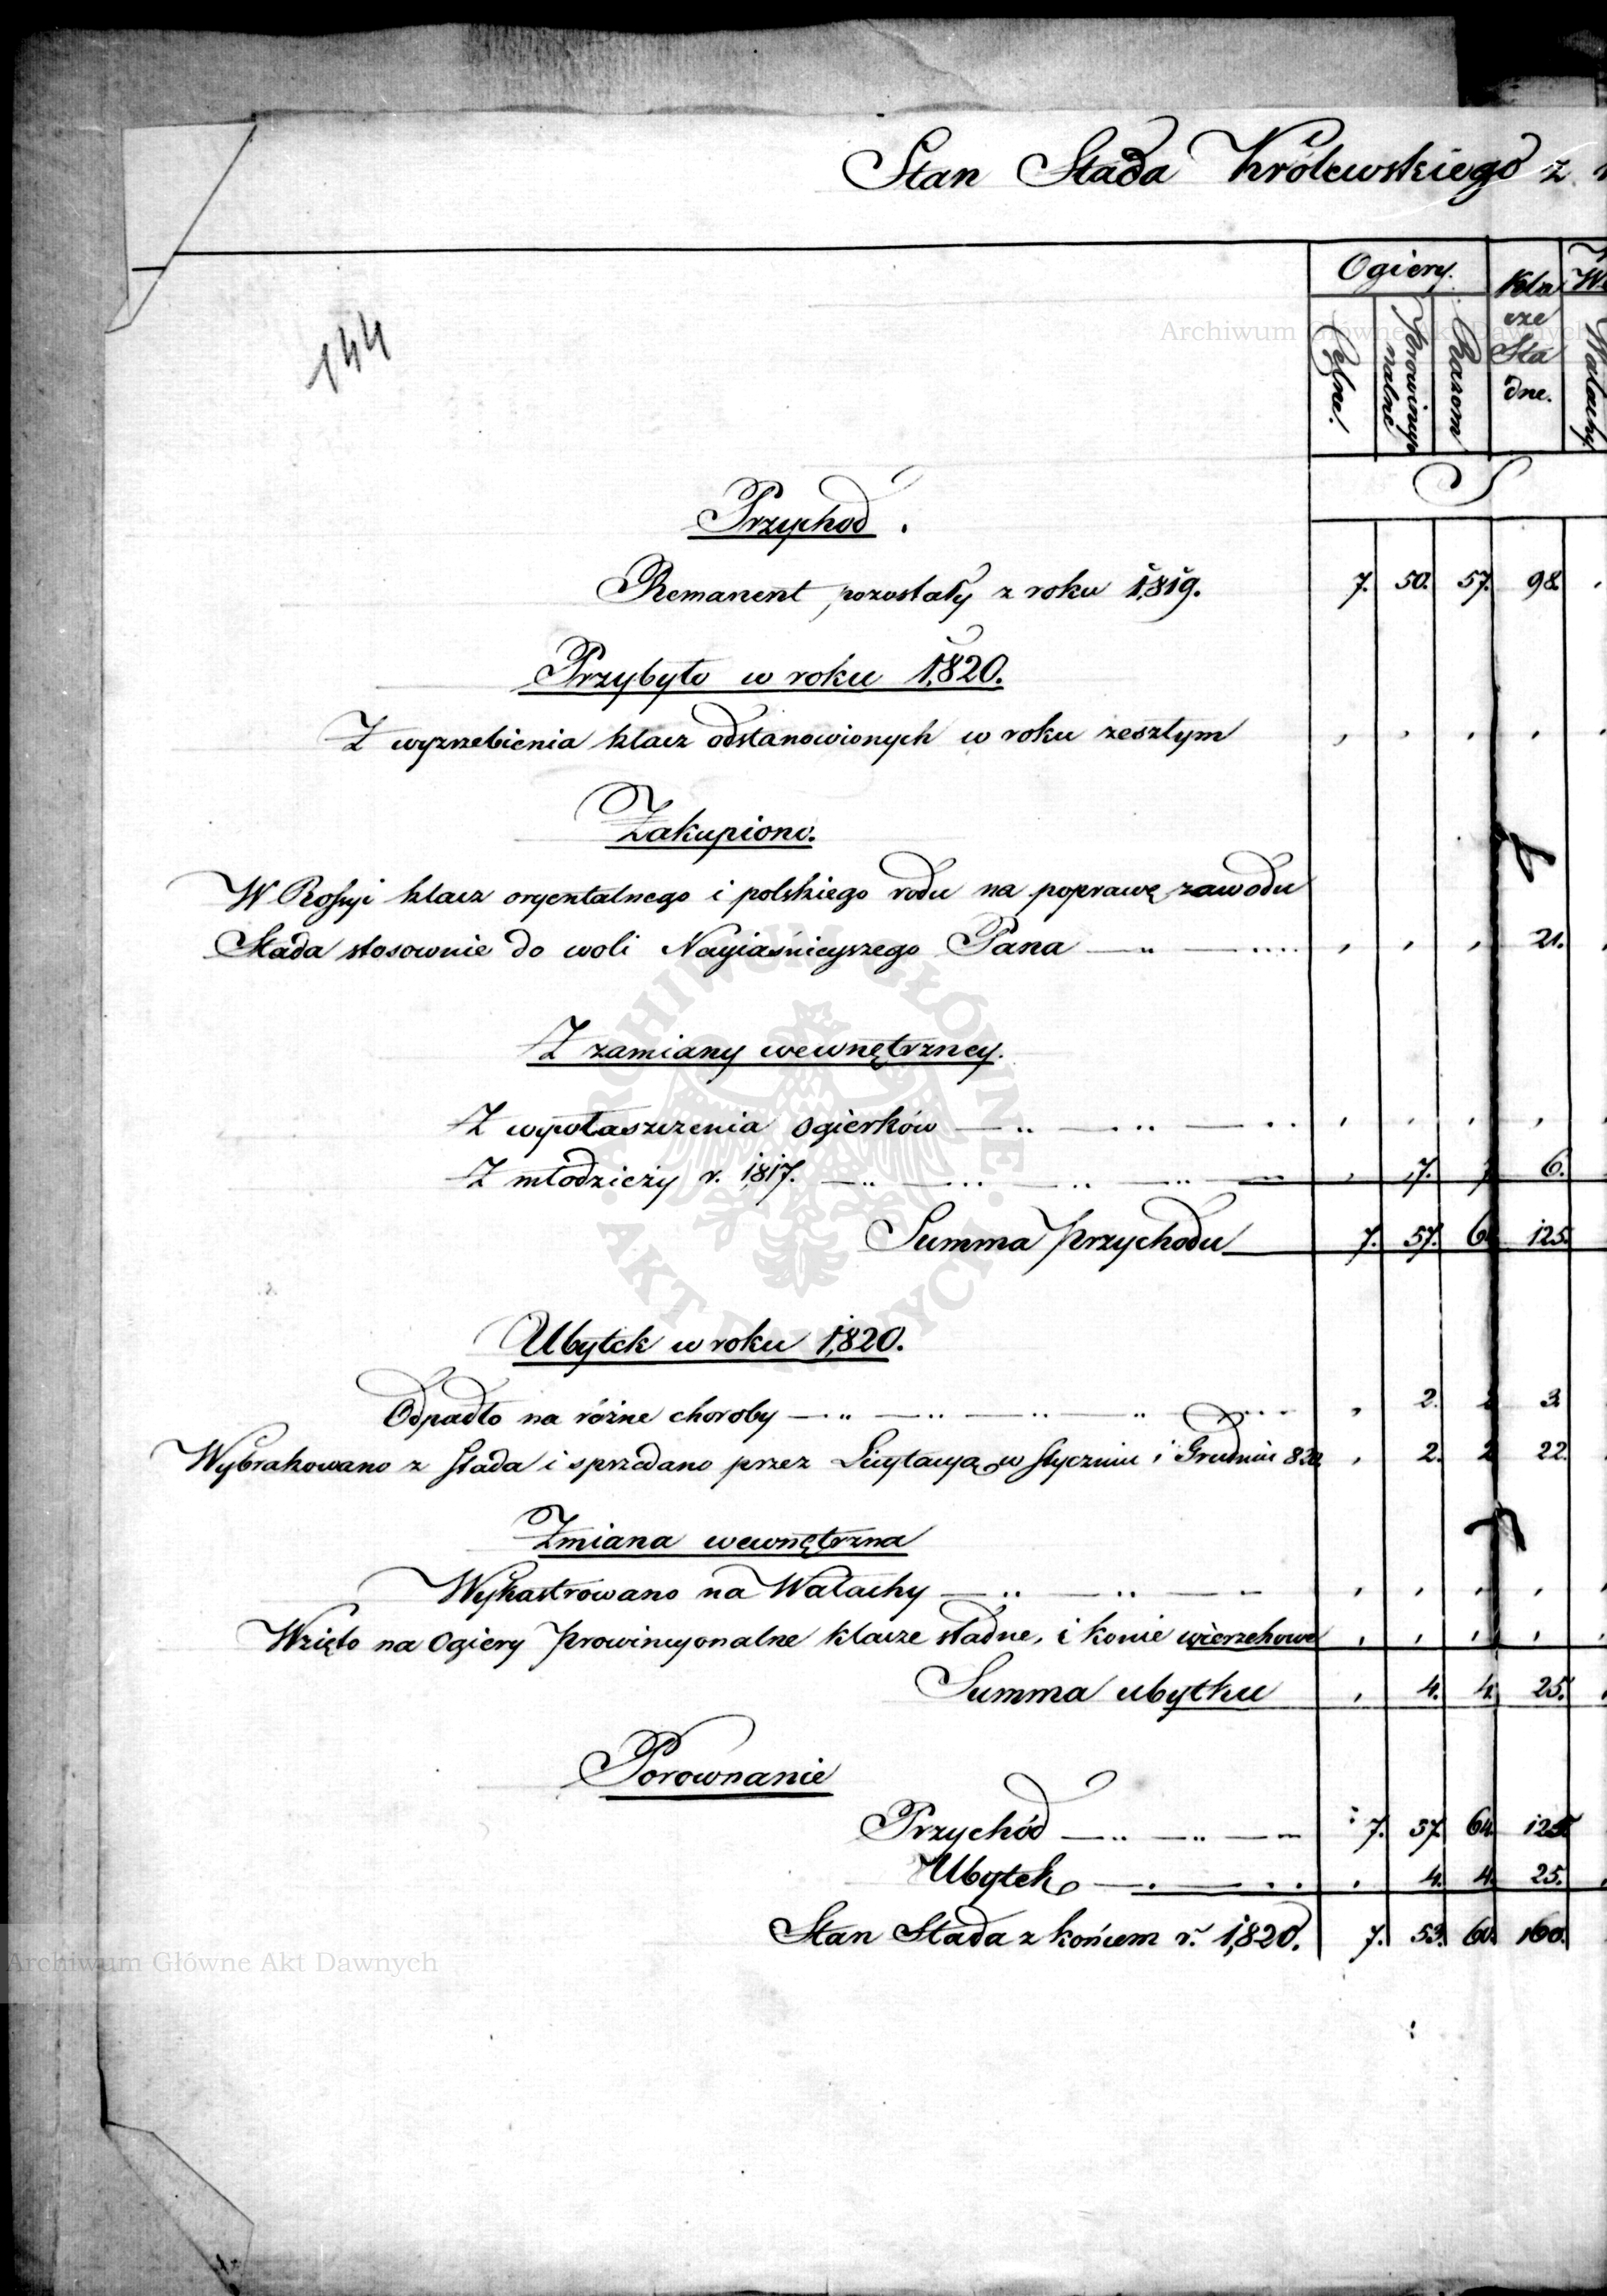 Stan Stada Królewskiego z
Ogiery.
Kla
cze
Sta
dne.
Czfne.
Prowincyo
nalne
Razem
Wałachy
144
Przychod.
Remanent pozostały z roku 1819. 7. 50. 57. 98.
Przybyło w roku 1820.
Z wyzrzebienia klacz odstanowionych w roku zeszłym
Zakupiono.
W Rossyi klacz oryentalnego i polskiego rodu na poprawę zawodu
Stada stosownie do woli Nayiaśnieyszego Pana 21.
Z zamiany wewnętrzney.
Z wywłaszczenia ogierków
Z młodzieży r. 1817. 7. 7 6.
Summa Przychodu 7. 57. 6 125.
Ubytek w roku 1820.
Odpadło na różne choroby 2. 2 3
Wybrakowano z Stada i sprzedano przez Licytacyą w Styczniu i Grudniu 820. 2. 2 22.
Zmiana wewnętrzna
Wykastrowano na Wałachy
Wzięto na Ogiery Prowincyonalne klacze stadne, i konie wierzchowe
Summa ubytku 4. 4. 25.
Porownanie
Przychód 7. 57. 64. 125
Ubytek 4. 4. 25.
Stan Stada z końcem r. 1820. 7. 53. 60. 100.
Archiwum Główne Akt Dawnych
Archiwum Główne Akt Dawnych
ARCHIWUM GŁÓWNE AKT DAWNYCH